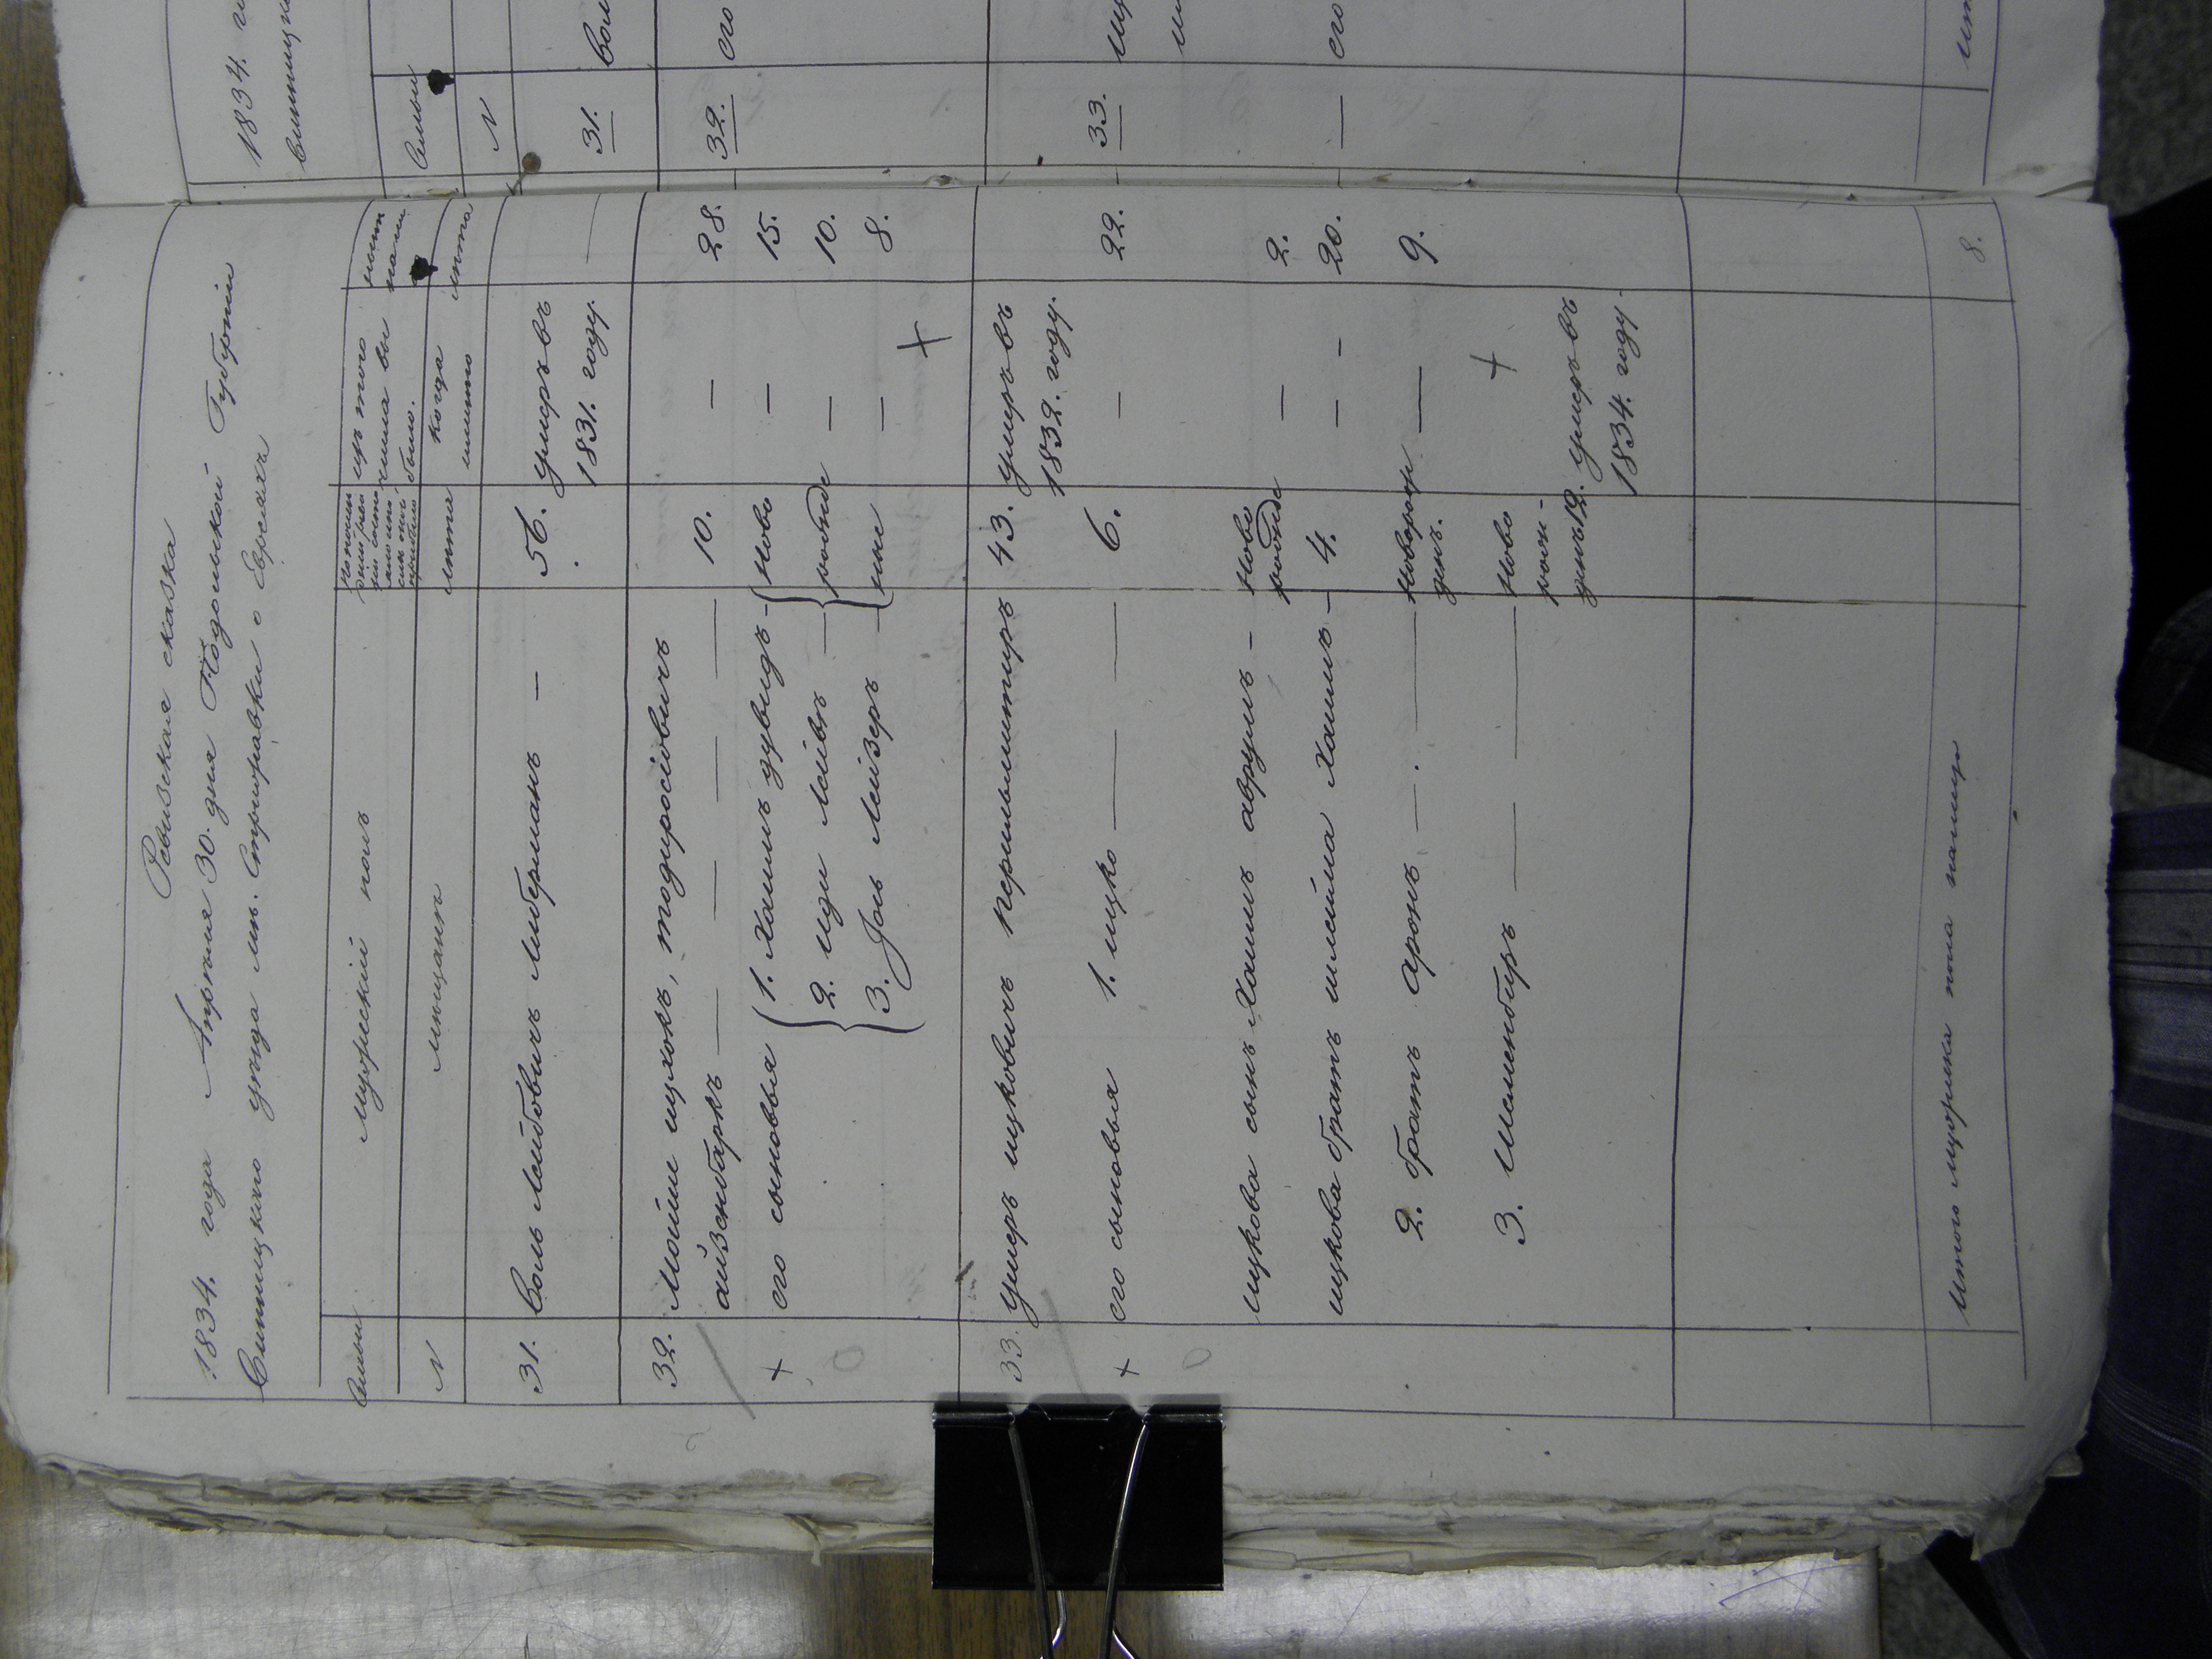 Ревизская сказка
1834. года Апреля 30. дня Подольской Губернии
Винницкого уезда м. Стрижавки о Евреяхъ
Семьи
N
мужеский полъ
мещане
лета
изъ того числа вы было.
когда именно
лета
31. Воль Лейбовичъ Либерманъ — 56. умеръ въ 1831. году. —
32. Мойше ицковъ, тодиросіовичъ
айзенбаркъ — 10. — 28.
его сыновья 1. Хаимъ дувидъ — ново — 15.
2. иди Лейбъ — рожде — 10.
3. Іось Лейзеръ — ные — 8.
33. ушеръ ицковичъ перельмитеръ 43. умеръ въ
1832. году.
его сыновья 1. ицко — 6. — 22.
ицкова сынъ Хаимъ аврумъ — ново
рожде — 2.
ицкова братъ шлейма Хаимъ — 4. — — 20.
2. братъ аронъ — новорож
денъ. — 9.
3. — ново
рож-
денъ 12. умеръ въ
1834. году.
Итого мужска пола налицо 8.
1834.
Семьи
N
31.
32. его
33.
— его